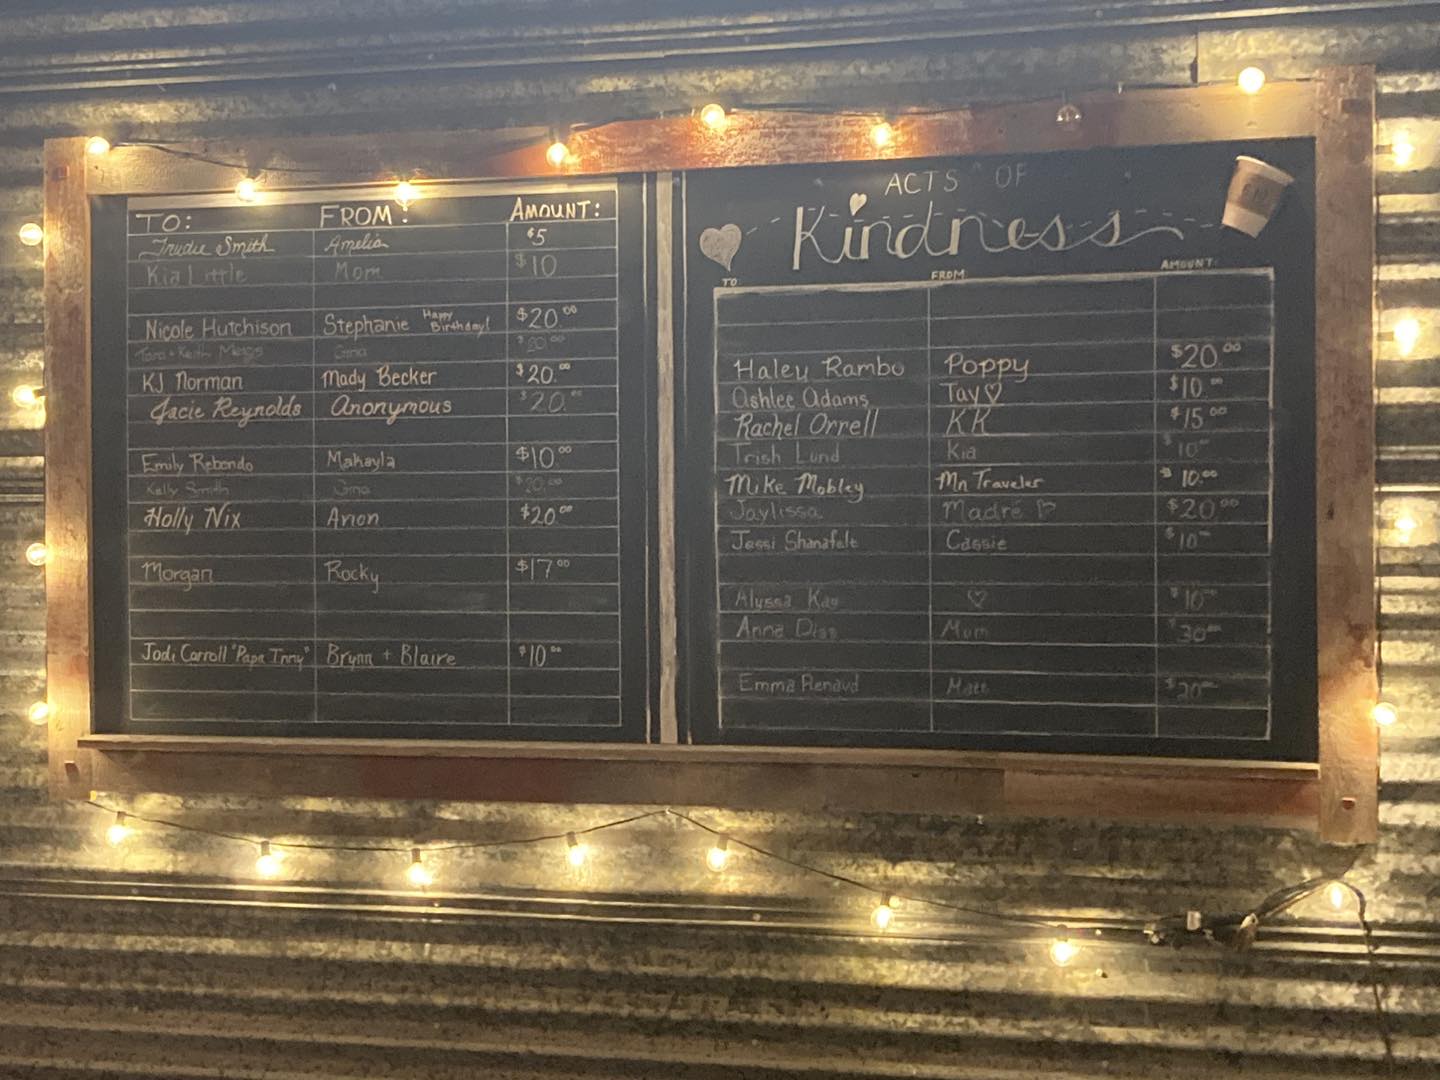 TO: FROM: AMOUNT:
Trudie Smith Amelia $5
Kia Little Mom $10
Nicole Hutchison Stephanie Happy Birthday! $20.00
Tara + Keith Gina $20.00
KJ Norman Mady Becker $20.00
Jacie Reynolds Anonymous $20.00
Emily Rebondo Makayla $10.00
Kelly Smith Gina $20.00
Holly Nix Anon $20.00
Morgan Rocky $17.00
Jodi Carroll "Papa Inny" Brynn + Blaire $10.00
ACTS OF
Kindness
TO: FROM: AMOUNT:
Haley Rambo Poppy $20.00
Ashlee Adams Tay♡ $10.00
Rachel Orrell KK $15.00
Trish Lund Kia $10.00
Mike Mobley Mn Traveler $10.00
Jaylissa Madre ♡ $20.00
Jessi Shanafelt Cassie $10.00
Alyssa Kay ♡ $10.00
Anna Dias Mum $30.00
Emma Renaud Matt $20.00